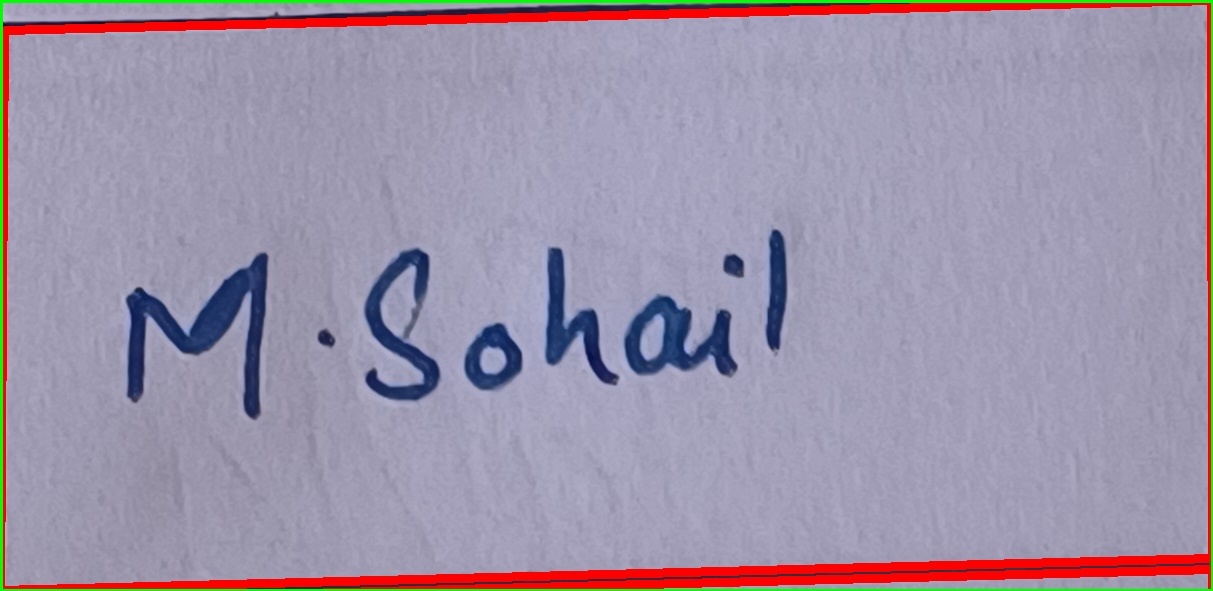 M. Sohail